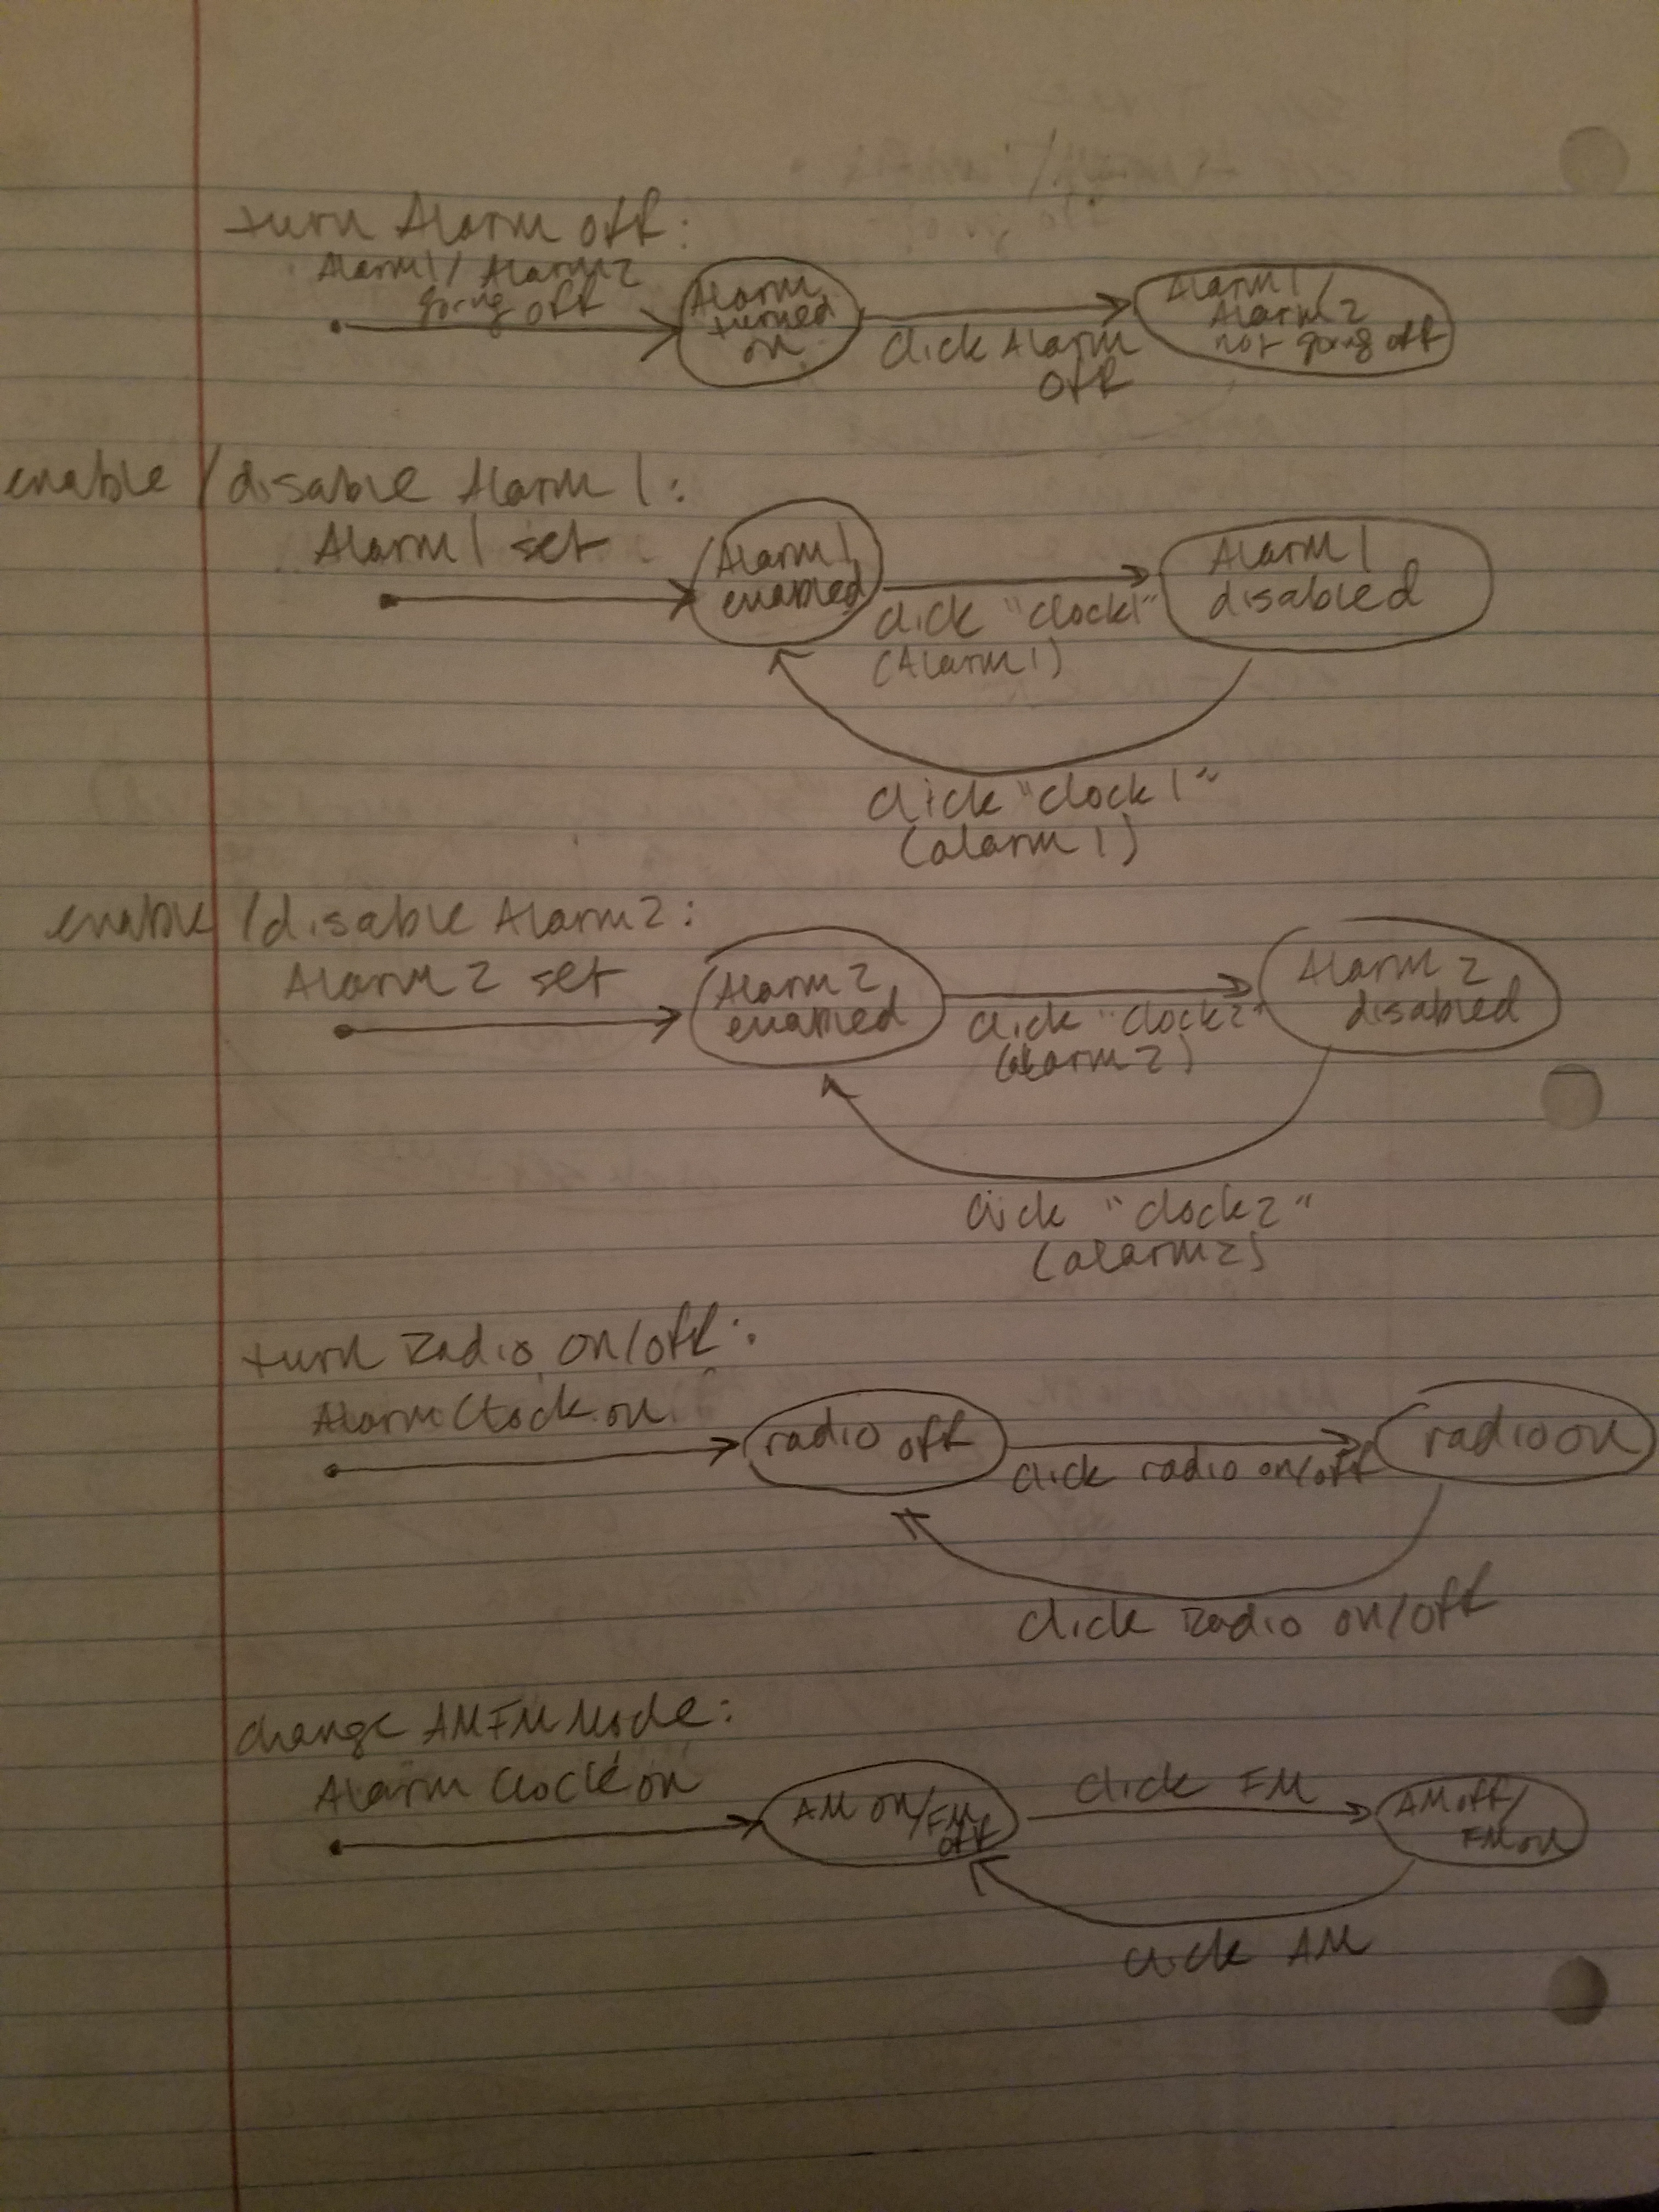 turn Alarm off:
Alarm1/ Alarm2
going off
Alarm
turned
on
click Alarm
off
Alarm1/
Alarm2
not going off
enable/disable Alarm 1:
Alarm1 set
Alarm1
enabled
click "clock1"
(Alarm1)
Alarm1
disabled
click "clock1"
(alarm1)
enable/disable Alarm2:
Alarm2 set
Alarm2
enabled
click "clock2"
(alarm2)
Alarm2
disabled
click "clock2"
(alarm2)
turn Radio on/off:
Alarm Clock on
radio off
click radio on/off
radio on
click Radio on/off
change AMFM Mode:
Alarm Clock on
AM on/FM
off
click FM
AM off/
FM on
click AM